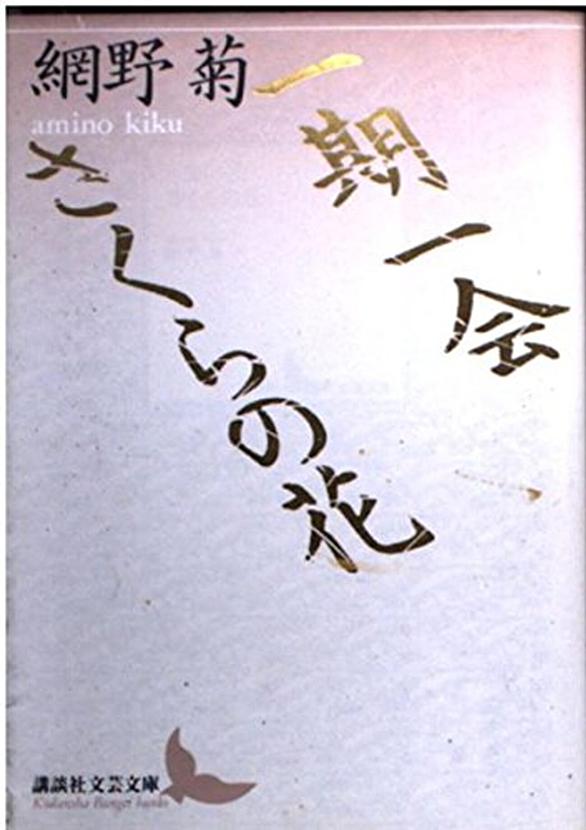 網野 菊
amino kiku
一期一会
さくらの花
講談社文芸文庫
Kodansha Bungei bunko